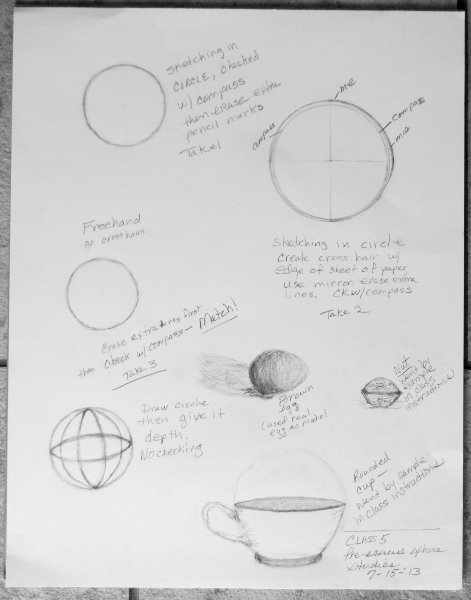 Sketching in
CIRCLE, checked
w/compass
then erase extra
pencil marks
Take 1
me
compass
compass
me
Sketching in circle
Create cross hair w/
Edge of sheet of paper
Use mirror. Erase extra
lines. CK w/compass
Take 2
Freehand
no crosshairs
Erase extra lines first
then check w/compass - Match!
Take 3
Draw circle
then give it
depth.
No checking
Brown
egg
(used real
egg as
went by
sample
in class
instructions)
Rounded
cup -
Went by sample
in class instructions
CLASS 5
Pre-exercise sphere
studies
7-15-'13